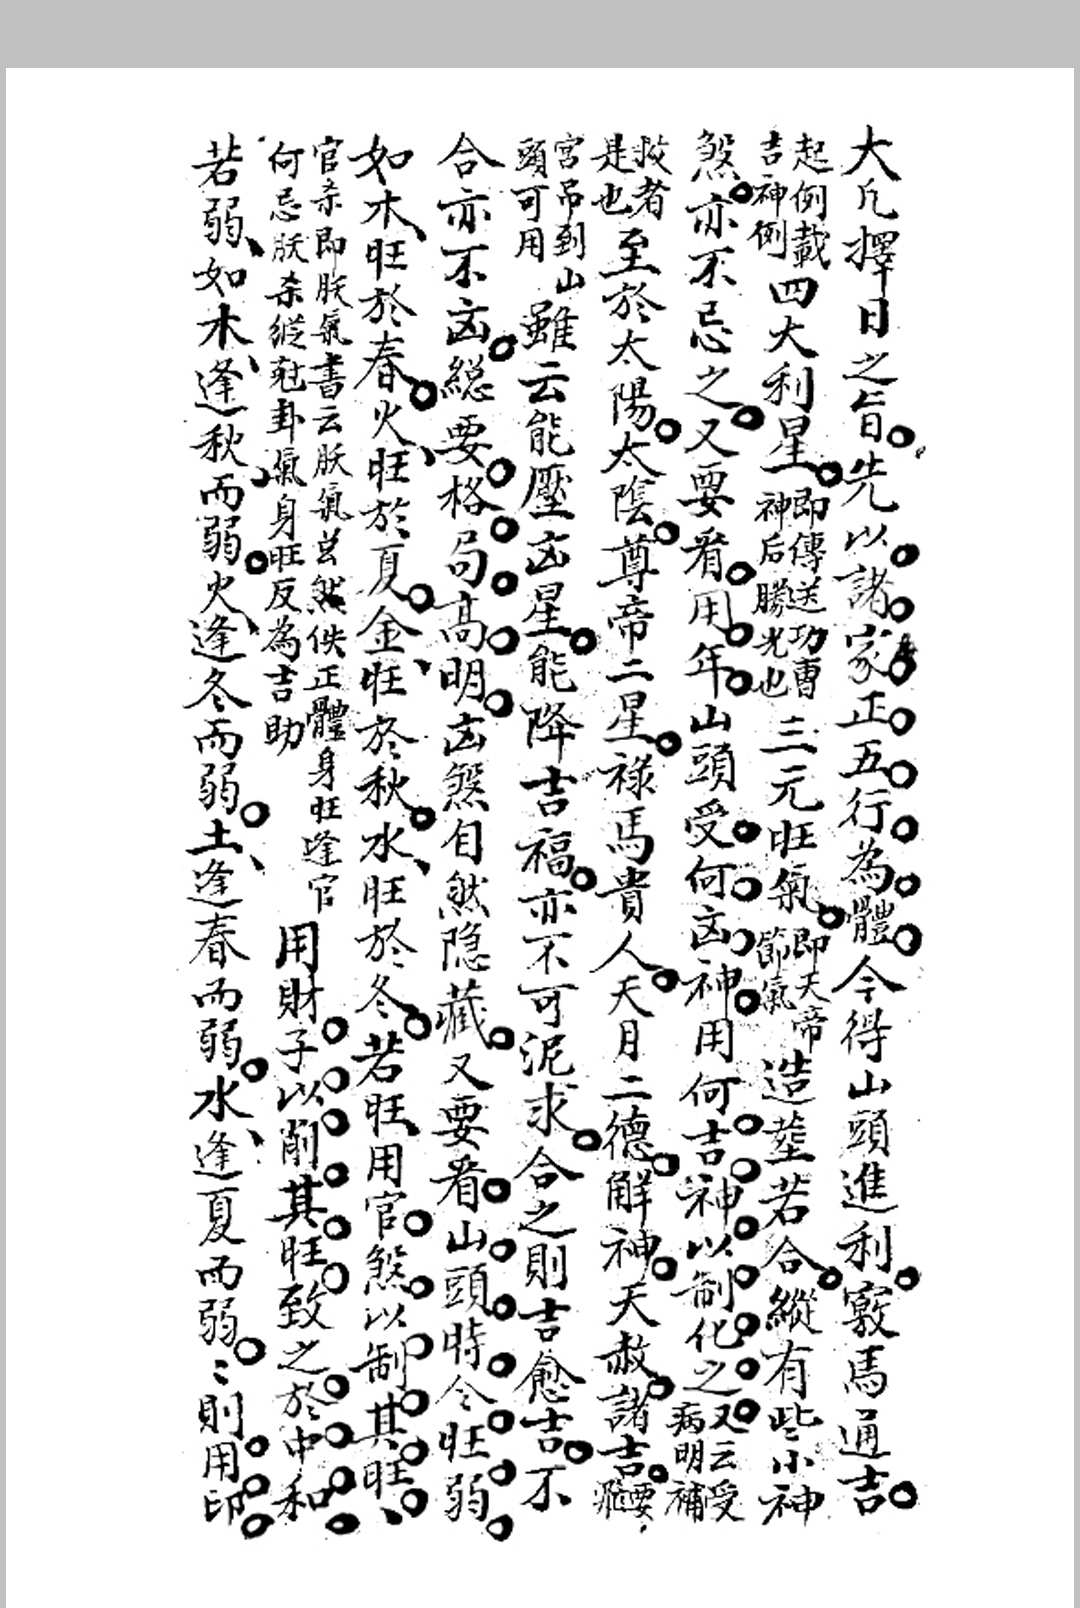 大凡擇日之旨先以諸家正五行為體今得山頭進利竅馬通吉
起例載吉神例四大利星即傳送功曹神后勝光也三元旺氣即天帝節氣造塟若合縱有些小神
煞亦不忌之又要看用年山頭受何凶神用何吉神以制化之又云受病明補
救者是也至於太陽太陰尊帝二星祿馬貴人天月二德解神天赦諸吉要飛
宮吊到山頭可用雖云能壓凶星能降吉福亦不可泥求合之則吉愈吉不
合亦不凶總要格局高明凶煞自然隐藏又要看山頭時令旺弱
如木旺於春火旺於夏金旺於秋水旺於冬若旺用官煞以制其旺
官杀即朕氣書云朕氣㒵然佚正體身旺逢官何忌朕杀縱尅卦氣身旺反為吉助用財子以削其旺致之於中和
若弱如木逢秋而弱火逢冬而弱土逢春而弱水逢夏而弱〻則用印